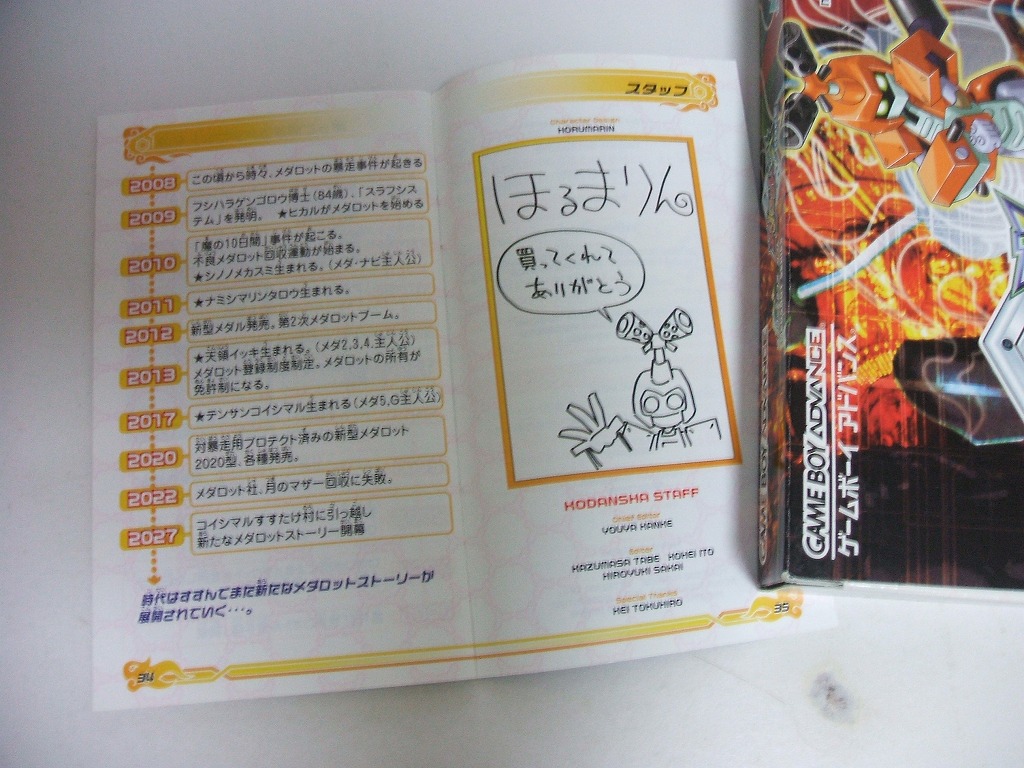 2008
この頃から時々、メダロットの暴走事件が起きる
2009
フシハラゲンゴロウ博士(84歳)、「スラフシス
テム」を発明。 ★ヒカルがメダロットを始める
2010
「魔の10日間」事件が起こる。
不良メダロット回収運動が始まる。
★シノノメカスミ生まれる。(メダ・ナビ主人公)
2011
★ナミシマリンタロウ生まれる。
2012
新型メダル発売。第2次メダロットブーム。
2013
★天領イッキ生まれる。(メダ2,3,4,主人公)
メダロット登録制度制定。メダロットの所有が
免許制になる。
2017
★テンサンコイシマル生まれる(メダ5,G主人公)
2020
対暴走用プロテクト済みの新型メダロット
2020型、各種発売。
2022
メダロット社、月のマザー回収に失敗。
2027
コイシマルすすたけ村に引っ越し
新たなメダロットストーリー開幕
時代はすすんでまた新たなメダロットストーリーが
展開されていく・・・。
34
スタッフ
Character Design
HORUMARIN
ほるまりん
買ってくれて
ありがとう
KODANSHA STAFF
Chief Editor
YOUYA KANKE
Editor
KAZUMASA TABE KOHEI ITO
HIROYUKI SAKAI
Special Thanks
KEI TOKUHIRO
35
GAME BOY ADVANCE
ゲームボーイ アドバンス